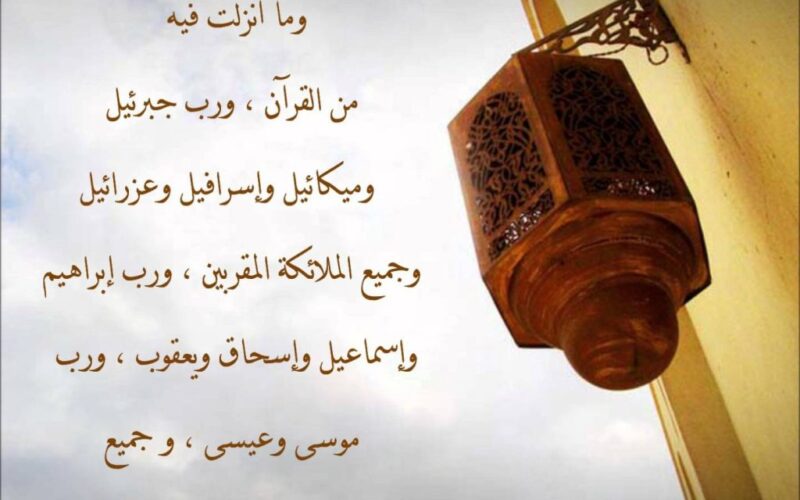 وما أنزلت فيه
من القرآن ، ورب جبرئيل
وميكائيل وإسرافيل وعزرائيل
وجميع الملائكة المقربين ، ورب إبراهيم
وإسماعيل وإسحاق ويعقوب ، ورب
موسى وعيسى ، و جميع